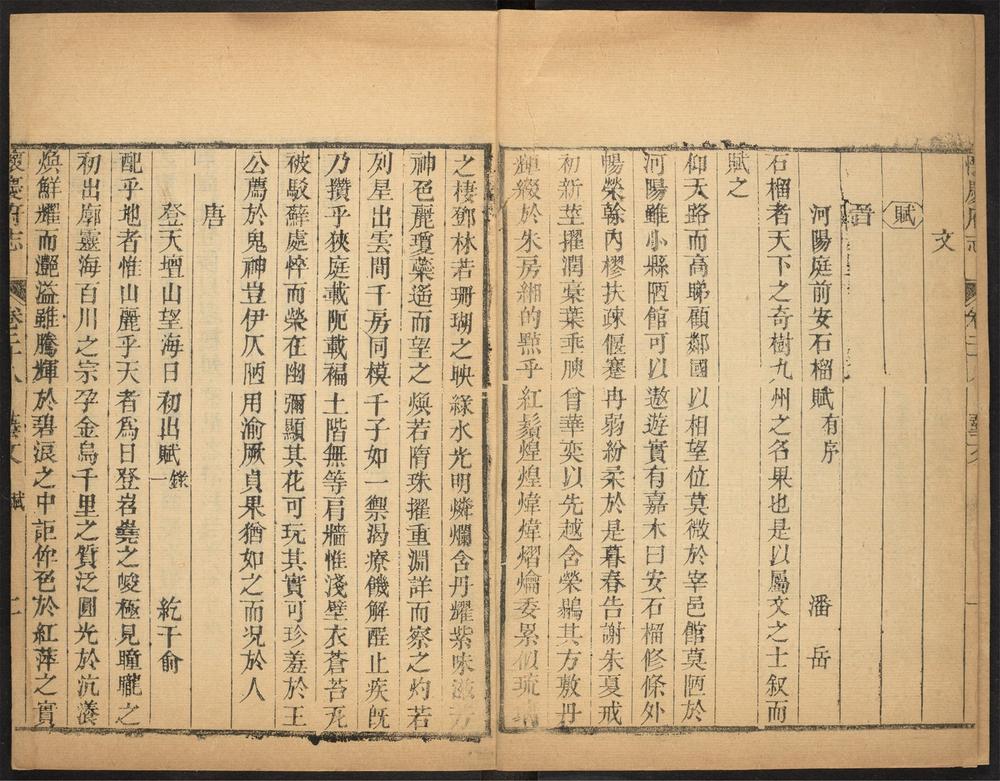 懷慶府志
卷二十八
藝文
一
文
賦
晉
河陽庭前安石榴賦有序 潘岳
石榴者天下之奇樹九州之名果也是以屬文之士叙而
賦之
仰天路而高睇顧鄰國以相望位莫微於宰邑館莫陋於
河陽雖小縣陋館可以遨遊實有嘉木曰安石榴修條外
暢榮榦內樛扶疎偃蹇冉弱紛柔於是暮春告謝朱夏戒
初新莖擢潤槀葉垂腴曾華奕以先越含榮鵾其方敷丹
輝綴於朱房緗的點乎紅鬚煌煌煒煒熠爚委累似琉璃
之棲鄧林若珊瑚之映綠水光明燐爛含丹耀紫味滋芳
神色麗瓊蘂遙而望之煥若隋珠擢重淵詳而察之灼若
列星出雲間千房同模千子如一禦渴療饑解酲止疾旣
乃攢乎狹庭載阨載褊土階無等肩牆惟淺壁衣蒼苔瓦
被駁蘚處悴而榮在幽彌顯其花可玩其實可珍羞於王
公薦於鬼神豈伊仄陋用渝厥貞果猶如之而况於人
唐
登天壇山望海日初出賦一錄 紇干俞
配乎地者惟山麗乎天者爲日登岧嶤之峻極見曈曨之
初出廓靈海百川之宗孕金烏千里之質泛圓光於沆瀁
煥鮮耀而灔溢雖騰輝於碧浪之中詎侔色於紅萍之實
懷慶府志 卷二十八 藝文 賦 二